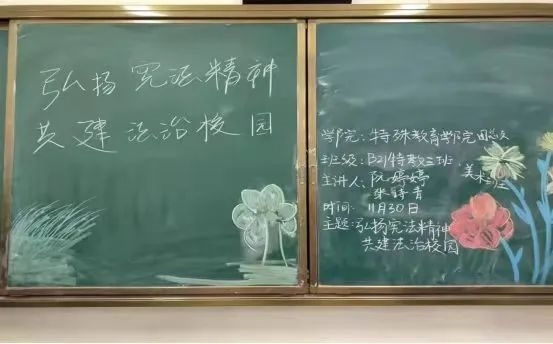 弘扬宪法精神
共建法治校园
学院：特殊教育学院团总支
班级：B21特教三班、
美术班
主讲人：阮婷婷
时间：11月30日
主题：弘扬宪法精神
共建法治校园